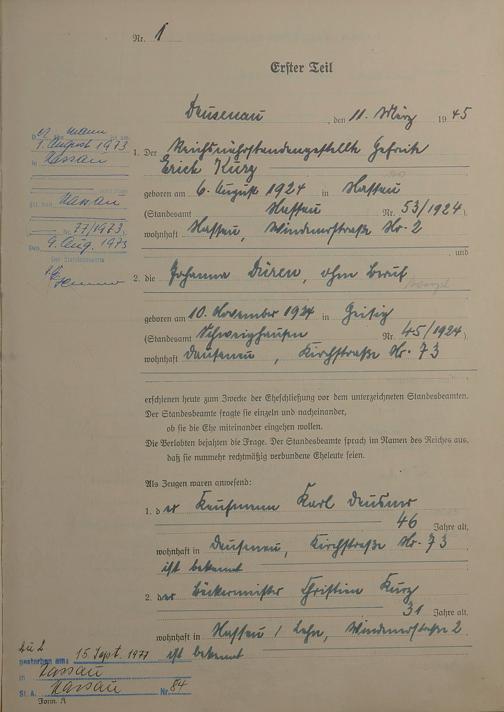 Nr. 1
Erster Teil
Dausenau, den 11. März 1945
1. Der Reichsnährstandangestellte Gefreite
Erich Kurz
geboren am 6. August 1924 in Nassau
(Standesamt Nassau Nr. 53/1924).
wohnhaft Nassau, Windenerstraße Nr. 2
, und
2. die Johanna Düren, ohne Beruf
geboren am 10. November 1924 in Geisig
(Standesamt Schweighausen Nr. 45/1924).
wohnhaft Dausenau, Kirchstraße Nr. 73
erschienen heute zum Zwecke der Eheschließung vor dem unterzeichneten Standesbeamten.
Der Standesbeamte fragte sie einzeln und nacheinander,
ob sie die Ehe miteinander eingehen wollen.
Die Verlobten bejahten die Frage. Der Standesbeamte sprach im Namen des Reiches aus,
daß sie nunmehr rechtmäßig verbundene Eheleute seien.
Als Zeugen waren anwesend:
1. der Kaufmann Karl
46 Jahre alt,
wohnhaft in Dausenau, Kirchstraße Nr. 73
ist bekannt
2. der Bäckermeister Christian Kurz
31 Jahre alt,
wohnhaft in Nassau / Lahn, Windenerstraße 2
ist bekannt
Mann
1. August 1973
in Nassau
Nassau
Nr. 77/1973
Den 9. Aug. 1973
Der Standesbeamte
zu 2
gestorben am: 15. Sept. 1977
in Nassau
St. A. Nassau Nr. 84
Form. A